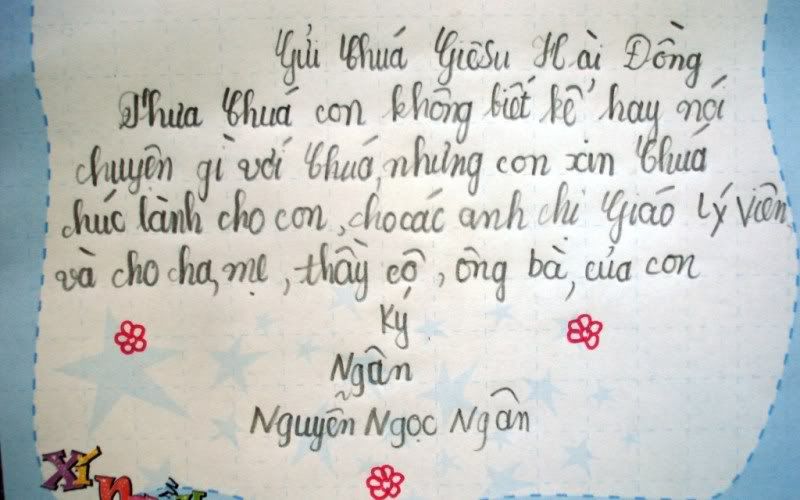 Gửi Chuá Giêsu Hài Đồng
Thưa Chuá con không biết kể hay nói
chuyện gì với Chuá, nhưng con xin Chuá
chúc lành cho con, cho các anh chị Giáo Lý Viên
và cho cha, mẹ, thầy cô, ông bà, của con
Ký
Ngân
Nguyễn Ngọc Ngân
Xí